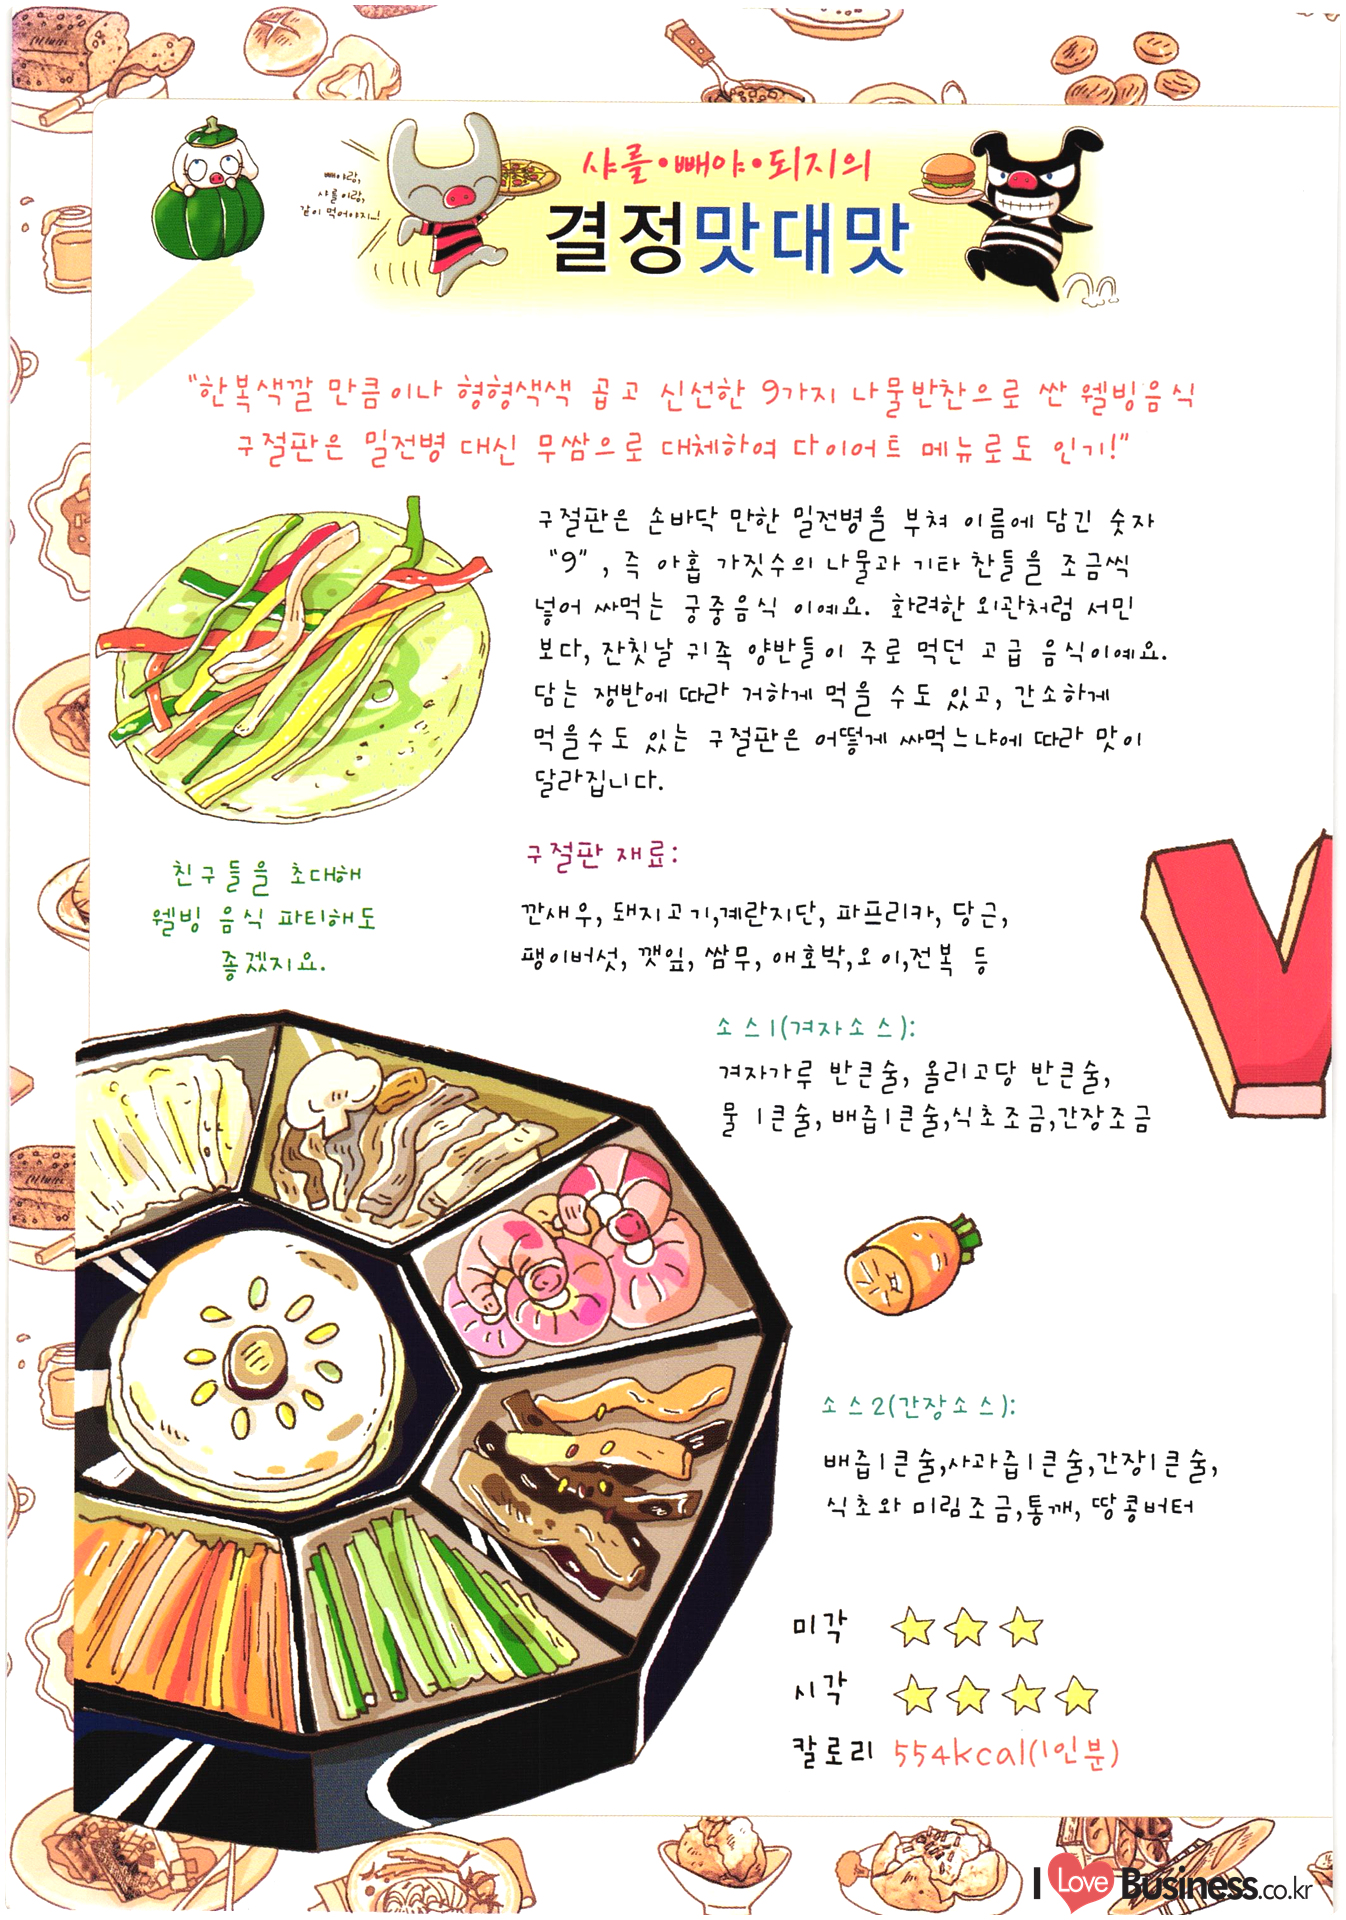 빼야랑,
샤를이랑,
같이 먹어야지~!
샤를•빼야•되지의
결정맛대맛
"한복색깔 만큼이나 형형색색 곱고 신선한 9가지 나물반찬으로 싼 웰빙음식
구절판은 밀전병 대신 무쌈으로 대체하여 다이어트 메뉴로도 인기!"
구절판은 손바닥 만한 밀전병을 부쳐 이름에 담긴 숫자
"9" , 즉 아홉 가짓수의 나물과 기타 찬들을 조금씩
넣어 싸먹는 궁중음식 이예요. 화려한 외관처럼 서민
보다, 잔칫날 귀족 양반들이 주로 먹던 고급 음식이예요.
담는 쟁반에 따라 거하게 먹을 수도 있고, 간소하게
먹을수도 있는 구절판은 어떻게 싸먹느냐에 따라 맛이
달라집니다.
친구들을 초대해
웰빙 음식 파티해도
좋겠지요.
구절판 재료:
깐새우, 돼지고기,계란지단, 파프리카, 당근,
팽이버섯, 깻잎, 쌈무, 애호박,오이,전복 등
V
소스1(겨자소스):
겨자가루 반큰술, 올리고당 반큰술,
물 1큰술, 배즙1큰술,식초조금,간장조금
소스2(간장소스):
배즙1큰술,사과즙1큰술,간장1큰술,
식초와 미림조금,통깨, 땅콩버터
미각
시각
칼로리 554kcal(1인분)
I Love Business.co.kr